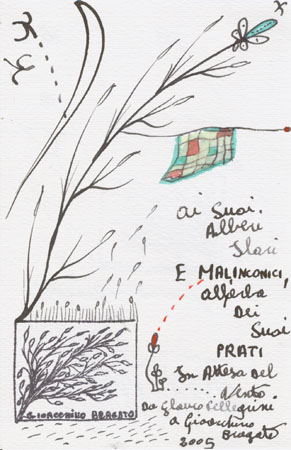 ai Suoi.
Alberi
Ilari
E MALINCONICI,
all'erba
Dei
Suoi
PRATI
In Attesa Del
Vento
Da Glauco Pellegrini
a Gioacchino
Bragato
2005
GIOACCHINO BRAGATO